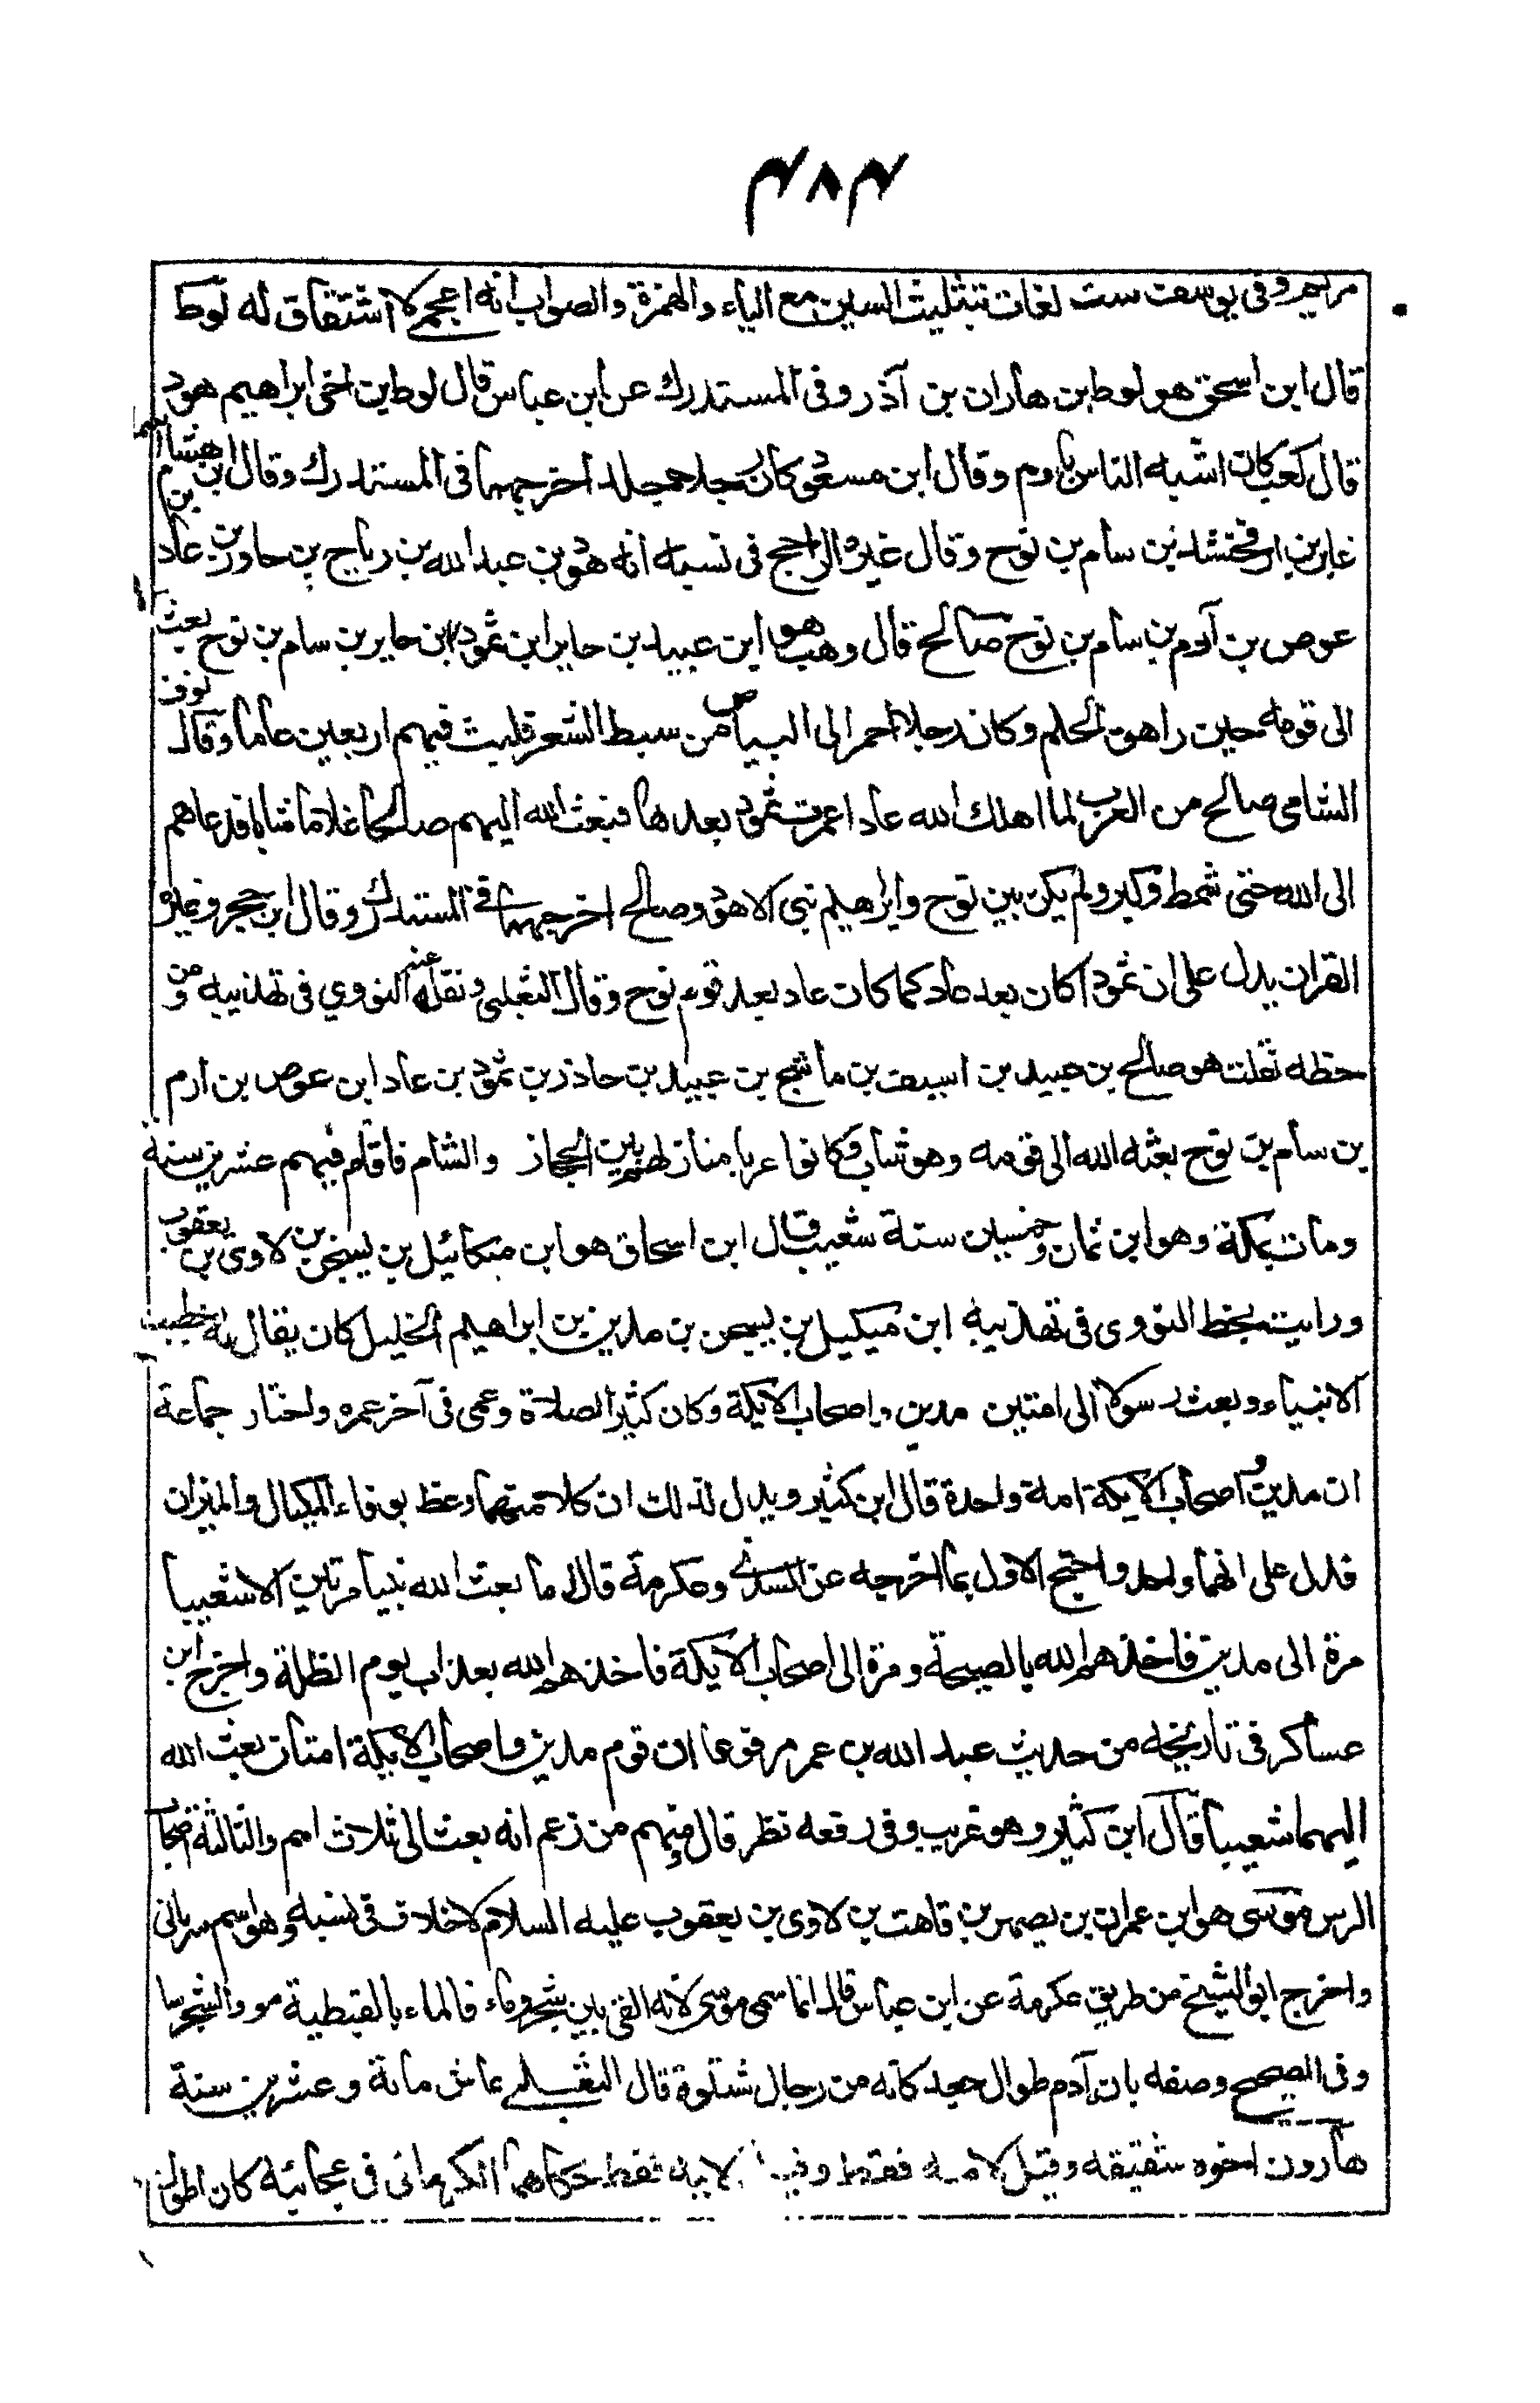 ٣٨٣
مريم وفى يوسف ست لغات بتثليث السين مع الياء والهمزة والصواب انه اعجمى لا اشتقاق له لوط
قال ابن اسحق هو لوط بن هاران بن آذر وفى المستدرك عن ابن عباس قال لوط بن اخى ابراهيم هود
قال كعب كان اشبه الناس بآدم وقال ابن مسعود كان رجلا جلدا اخرجهما فى المستدرك وقال ابن هشام
عابر بن ارفخشد بن سام بن نوح وقال غيره الراجح فى نسبه انه هود بن عبد الله بن رباح بن حاور بن عاد
عوص بن آدم بن سام بن نوح صالح قال وهب هو ابن عبيد بن حاير ابن ثمود ابن حاير بن سام بن نوح بعث
الى قومه حين راهق الحلم وكان رجلا احمر الى البياض سبط الشعر فلبث فيهم اربعين عاما وقال نوف
الشامى صالح من العرب لما اهلك الله عادا عمرت ثمود بعدها فبعث الله اليهم صالحا غلاما شابا فدعاهم
الى الله حتى شمط وكبر ولم يكن بين نوح وابراهيم نبى الا هود وصالح اخرجهما فى المستدرك وقال ابن حجر وغيره
القران يدل على ان ثمودا كان بعد عاد كما كان عاد بعد قوم نوح وقال الثعلبى ونقله عنه النووي فى تهذيبه ومن
خطه نقلت هو صالح بن عبيد بن اسيف بن ماشج بن عبيد بن حاذر بن ثمود بن عاد ابن عوص بن ارم
بن سام بن نوح بعثه الله الى قومه وهو شاب وكانوا عربا منازلهم بين الحجاز والشام فاقام فيهم عشرين سنة
ومات بمكة وهو ابن ثمان وخمسين سنة شعيب قال ابن اسحاق هو ابن ميكائيل بن يسجن بن لاوى بن يعقوب
ورايت بخط النووى فى تهذيبه ابن ميكيل بن يسجن بن مدين بن ابراهيم الخليل كان يقال له خطيب
الانبياء وبعث رسولا الى امتين مدين واصحاب الايكة وكان كثير الصلاة وعمى فى آخر عمره واختار جماعة
ان مدين واصحاب الايكة امة واحدة قال ابن كثير ويدل لذلك ان كلا منهما وعظ بوفاء المكيال والميزان
فدل على انهما واحد واحتج الاول بما اخرجه عن السدى وعكرمة قال ما بعث الله نبيا مرتين الا شعيبا
مرة الى مدين فاخذهم الله بالصيحة ومرة الى اصحاب الايكة فاخذهم الله بعذاب يوم الظلة واخرج ابن
عساكر فى تاريخه من حديث عبد الله بن عمر مرفوعا ان قوم مدين واصحاب الايكة امتان بعث الله
اليهما شعيبا قال ابن كثير وهو غريب وفى رفعه نظر قال منهم من زعم انه بعث الى ثلاث امم والثالثة اصحاب
الرس موسى هو ابن عمران بن يصهر بن قاهت بن لاوى بن يعقوب عليه السلام لا خلاف فى نسبه وهو اسم سريانى
واخرج ابو الشيخ من طريق عكرمة عن ابن عباس قال انما سمى موسى لانه القى بين شجر وماء فالماء بالقبطية مو والشجر سا
وفى الصحيح وصفه بان آدم طوال جعد كانه من رجال شنوة قال الثعلبى عاش مائة وعشرين سنة
هارون اخوه شقيقه وقيل لامه فقط وقيل لابيه فقط حكاهما الكرمانى فى عجائبه كان اطول